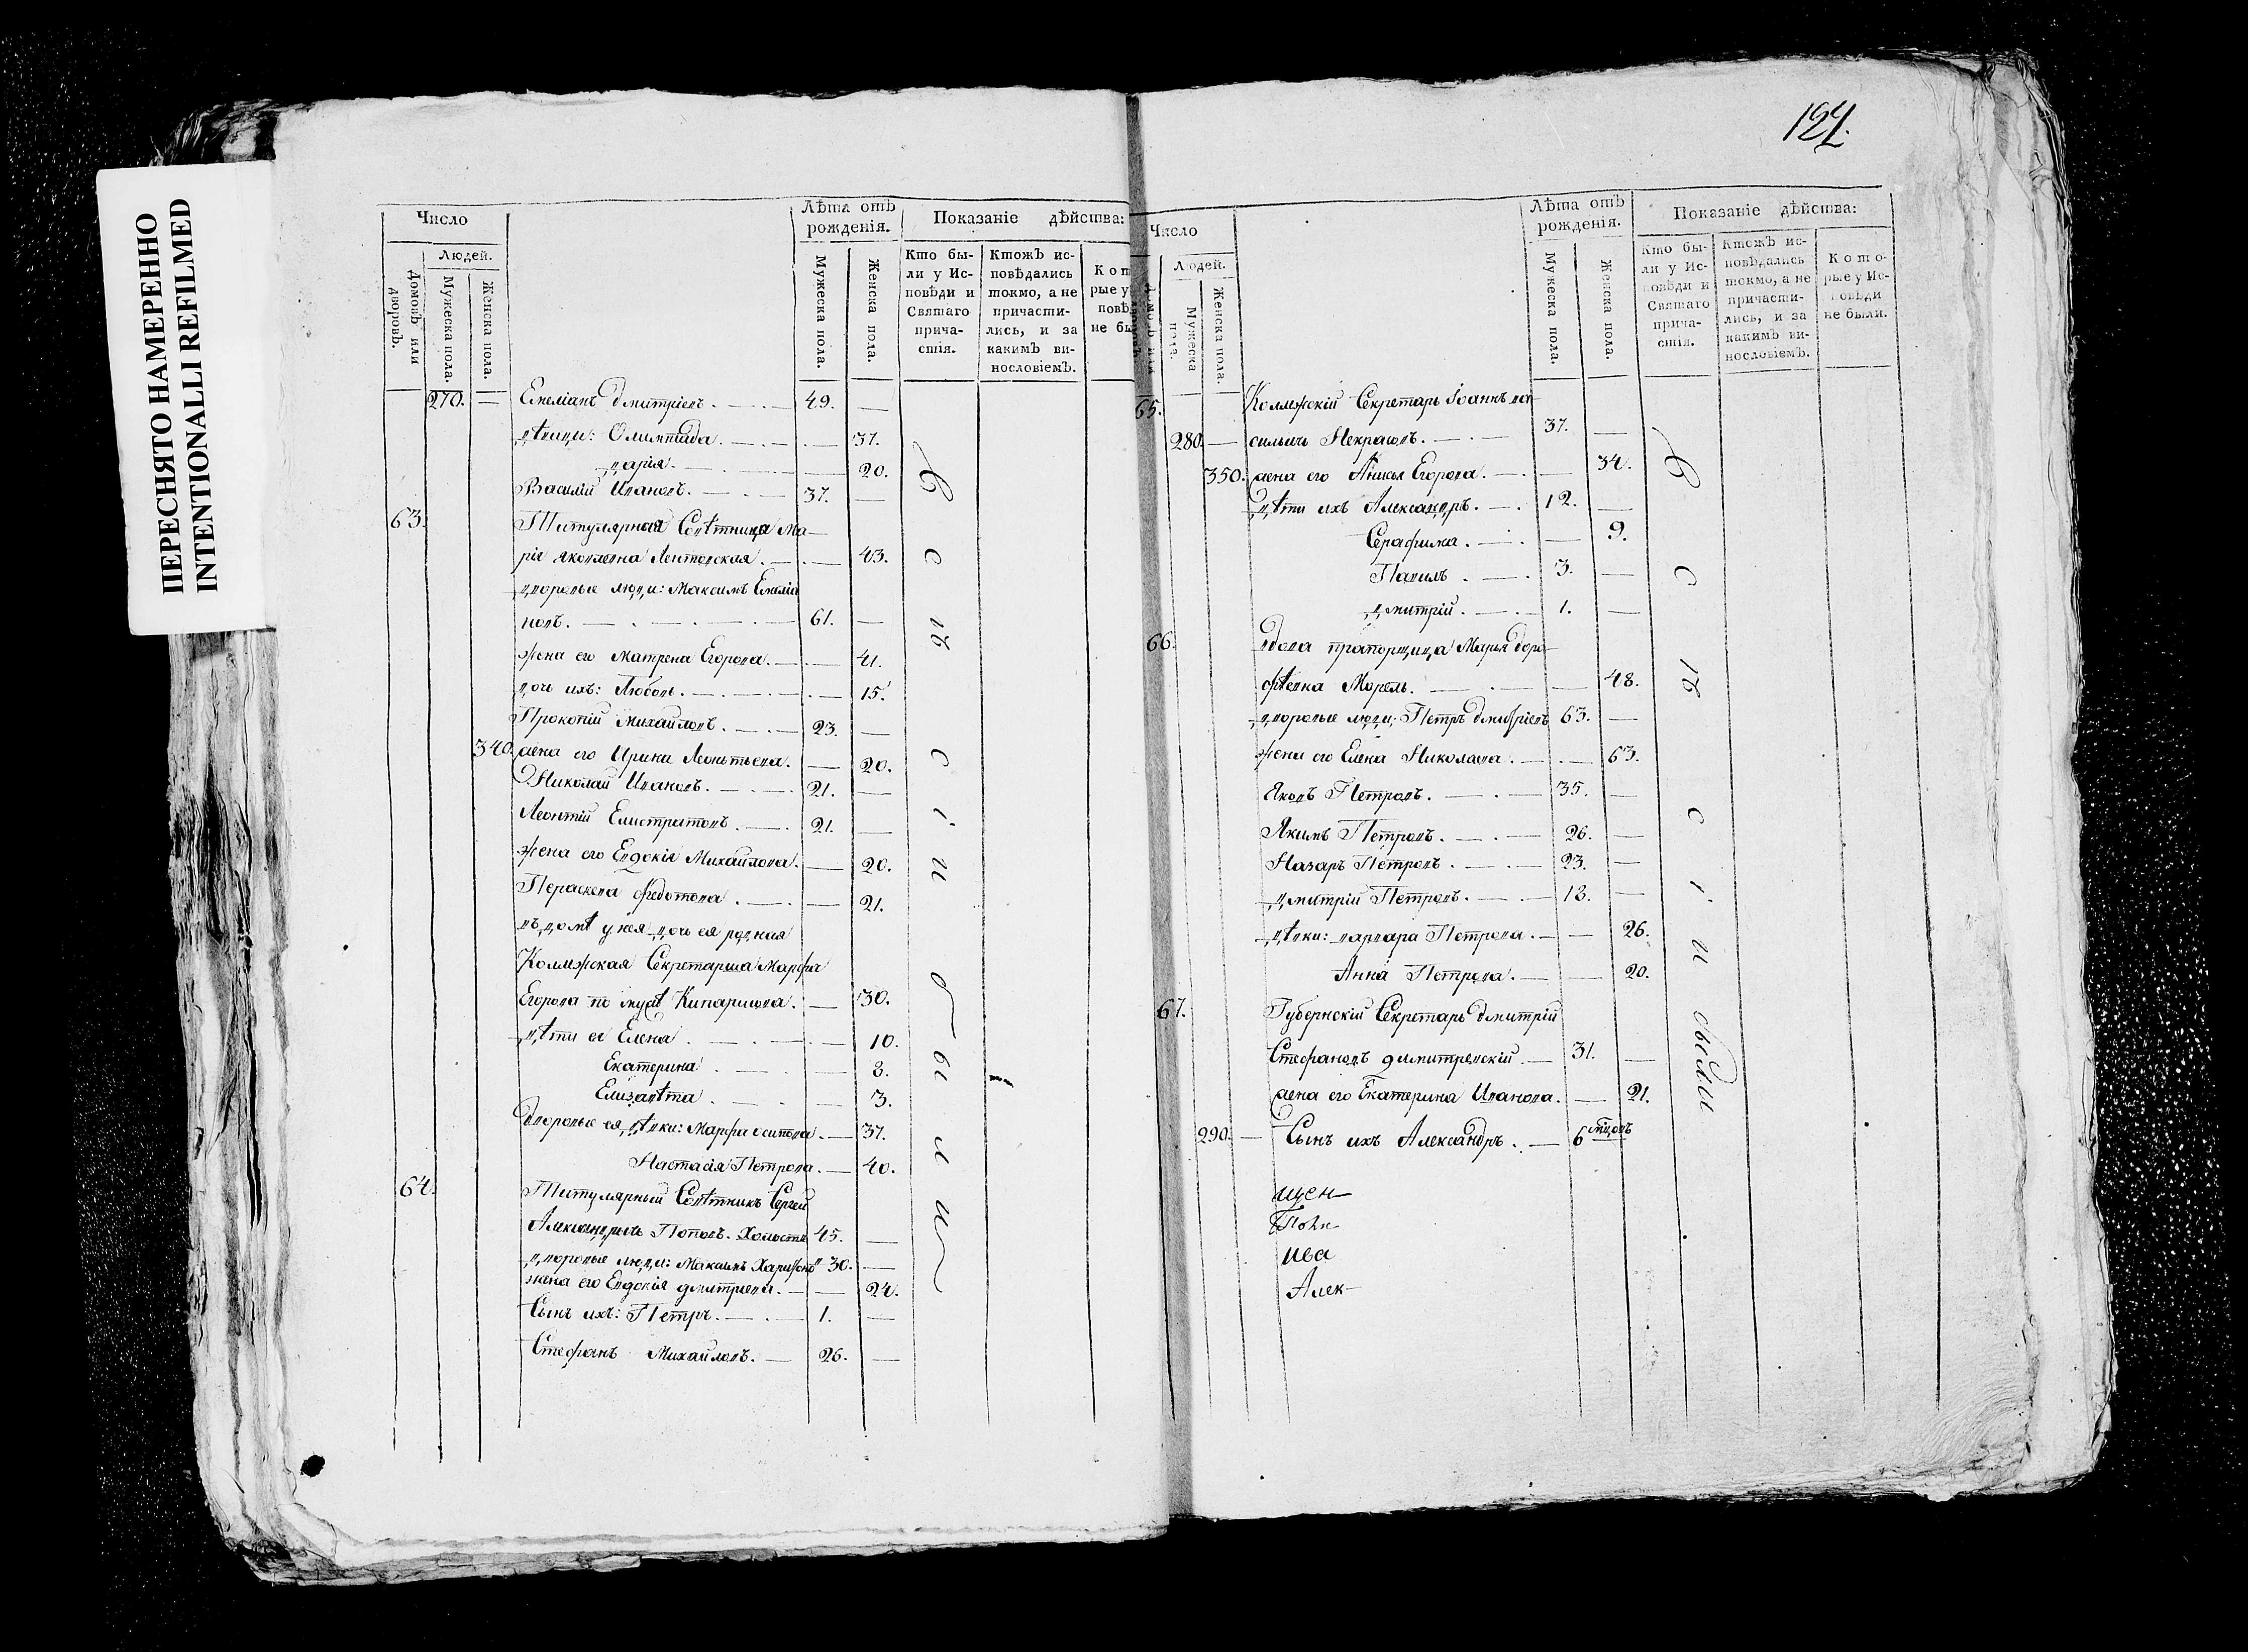 ПЕРЕСНЯТО НАМЕРЕННО
INTENTIONALLI REFILMED
Число
Людей.
Домовъ или дворовъ.
Мужеска пола.
Женска пола.
Лѣта отъ рожденія.
Мужеска пола.
Женска пола.
Показаніе дѣйства:
Кто были у Исповѣди и Святаго причастія.
Ктожъ исповѣдались токмо, а не причастились, и за какимъ винословіемъ.
Кот
рые у
повѣ
не бы
270. — Емеліанъ Дмитріевъ. 49. —
дѣвицы: Олимпіада. — 37.
Дарія. — 20.
Василій Ивановъ. 37. —
63. Титулярная Совѣтница Ма-
рія Яковлевна Лентовская. — 43.
дворовые люди: Максимъ Емеліа
новъ. 61. —
жена его Матрена Егорова. — 41.
дочь ихъ: Любовь. — 15.
Прокопій Михайловъ. 23. —
340. жена его Ирина Леонтьева. — 20.
Николай Ивановъ. 21. —
Леонтій Елистратовъ. 21. —
жена его Евдокія Михайлова. — 20.
Пераскева Федотова. — 21.
въ домѣ у нея дочь ея родная
Коллежская Секретарша Марфа
Егорова по мужѣ Кипарисова. — 30.
дѣти ее Елена. — 10.
Екатерина. — 8.
Елизавѣта. — 3.
Дворовые ея дѣвки: Марфа Осипова. — 37.
Настасія Петрова. — 40.
64. Титулярный Совѣтникъ Сергей
Александровичь Поповъ. Холостъ 45. —
дворовые люди: Максимъ Харитоновъ 30. —
жена его Евдокія Дмитриева. — 24.
Сынъ ихъ: Петръ. 1. —
Стефанъ Михайловъ. 26. —
124.
Число
Людей.
Мужеска пола.
Женска пола.
Лѣта отъ рожденія.
Мужеска пола.
Женска пола.
Показаніе дѣйства:
Кто были у Исповѣди и Святаго причастія.
Ктожъ исповѣдались токмо, а не причастились, и за какимъ винословіемъ.
Которые у Исповѣди не были.
65. Коллежскій Секретарь Іоаннъ Ва-
280. — сильичь Некрасовъ. 37. —
350. жена его Егорова. — 34.
дѣти ихъ Александръ. 12. —
Серафима. — 9.
Павилъ. 3. —
Дмитрій. 1. —
66. вдова прапорщица Марья Доро-
фѣевна Морель. — 48.
дворовые люди: Петръ Дмитріевъ 63. —
жена его Елена Николаева. — 63.
Яковъ Петровъ. 35. —
Якимъ Петровъ. 26. —
Назаръ Петровъ. 23. —
Дмитрій Петровъ. 13. —
дѣвки: Варвара Петрова. — 26.
Анна Петрова. — 20.
67. Губернскій Секретарь Дмитрій
Стефановъ Дмитревскій. 31. —
жена его Екатерина Иванова. — 21.
290. — Сынъ ихъ Александръ. — 6
щен-
Іоан
Ива
Алек-